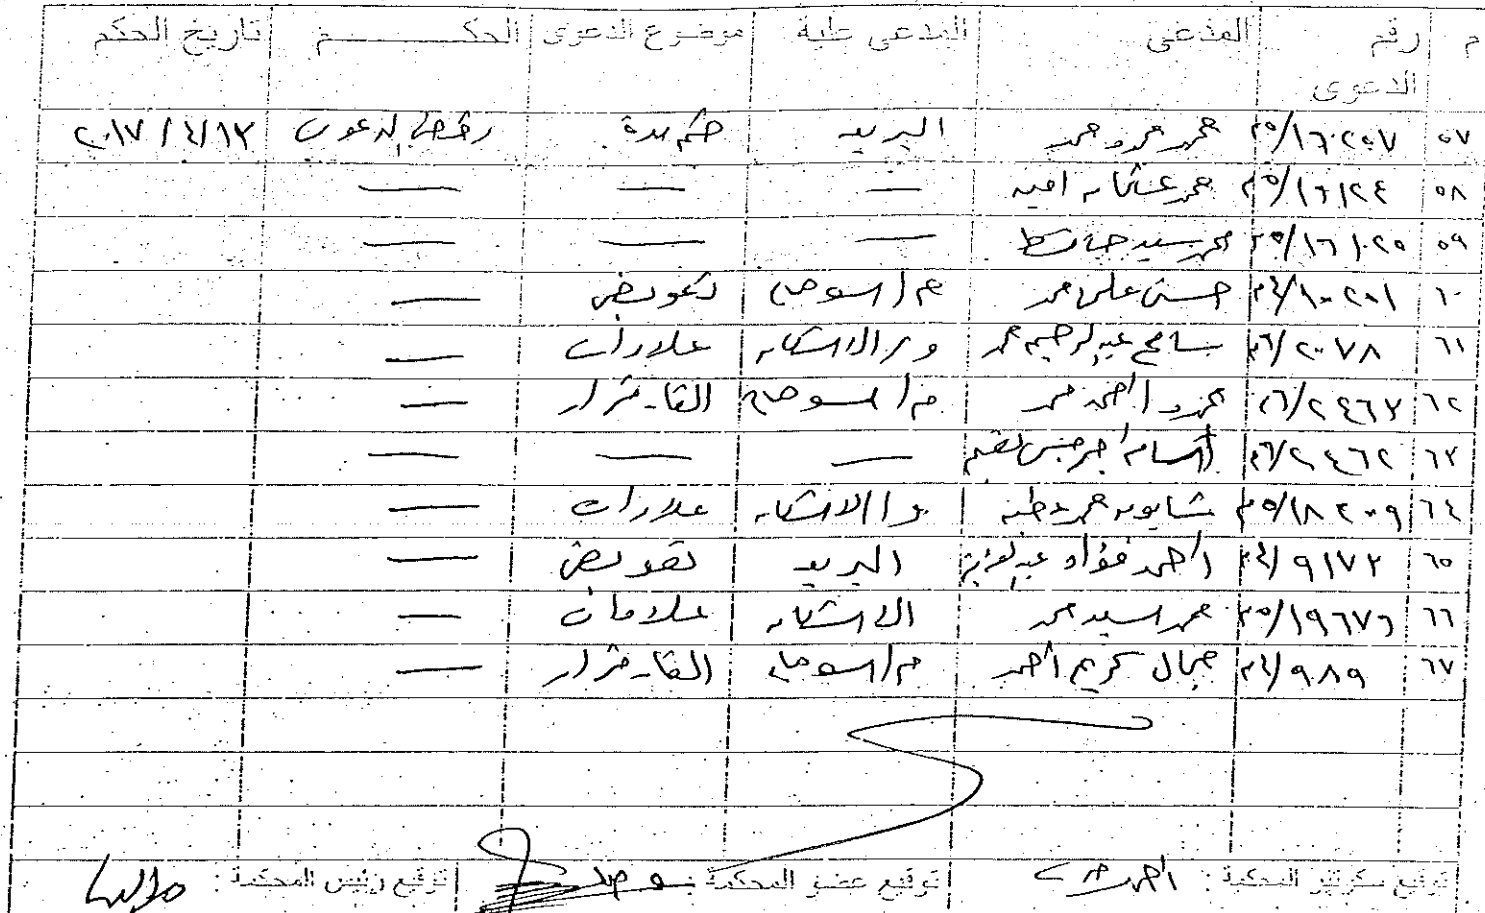 م رقم الدعوى المدعى المدعى علية موضوع الدعوى الحكــــــــم تاريخ الحكم
٥٧ محمد محمد البريد ضم مدة رفض الدعوى ٢٠١٧/٤/١٣
٥٨ ٢٥/١٦١٢٤ محمد عثمان امين — — —
٥٩ ٢٥/١٦١٠٢٥ محمد سيد حافظ — — —
٦٠ ٢٤/١٠٢٠١ حسن على محمد م/ اسوان تعويض —
٦١ ٢٦/٢٠٧٨ سامح عبدالرحيم محمد وز الاسكان علاوات —
٦٢ ٢٦/٢٤٦٧ محمود احمد محمد م/ اسوان الغاء قرار —
٦٣ ٢٦/٢٤٦٢ — — —
٦٤ ٢٥/١٨٢٠٩ محمد الاسكان علاوات —
٦٥ ٢٤/٩١٧٣ احمد فؤاد عبدالعزيز البريد تعويض —
٦٦ ٢٥/١٩٦٧٦ محمد سيد محمد الاسكان —
٦٧ ٢٤/٩٨٩ جمال كريم احمد م/ اسوان الغاء قرار —
توقيع سكرتير المحكمة : توقيع عضو المحكمة توقيع رئيس المحكمة :